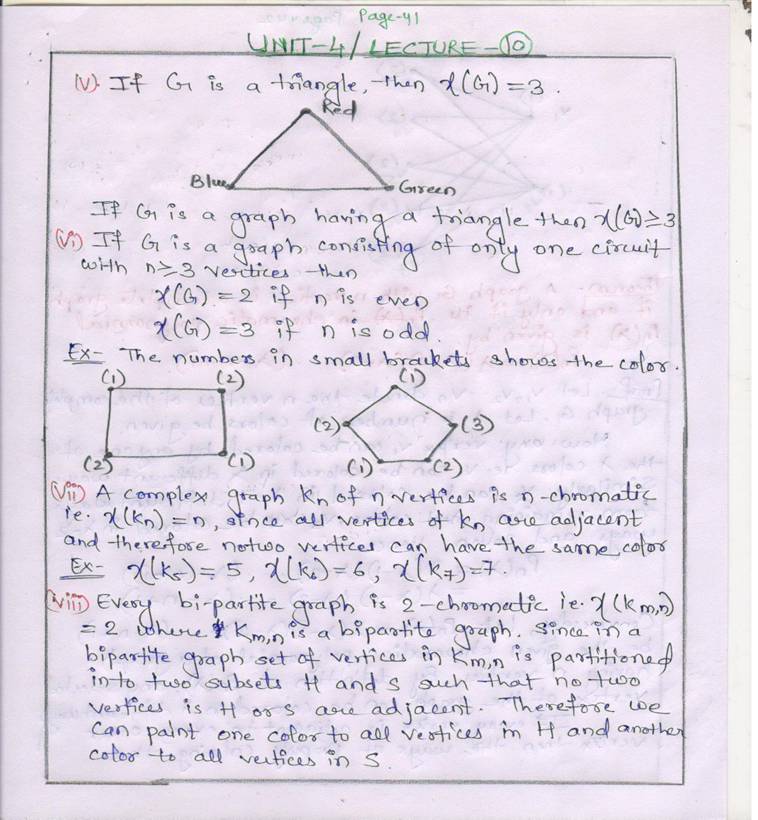 Page-41
UNIT-4/LECTURE-10
(V). If G is a triangle, then χ(G) = 3.
Red
Blue
Green
If G is a graph having a triangle then χ(G) ≥ 3
(Vi) If G is a graph consisting of only one circuit
with n ≥ 3 vertices then
χ(G) = 2 if n is even
χ(G) = 3 if n is odd.
Ex- The numbers in small brackets shows the color.
(1) (2) (1)
(2) (3)
(2) (1) (1) (2)
(Vii) A complex graph Kn of n vertices is n-chromatic
ie. χ(Kn) = n, since all vertices of Kn are adjacent
and therefore notwo vertices can have the same color
Ex- χ(K5) = 5, χ(K6) = 6, χ(K7) = 7.
(Viii) Every bi-partite graph is 2-chromatic ie. χ(Km,n)
= 2 where Km,n is a bipartite graph. Since in a
bipartite graph set of vertices in Km,n is partitioned
into two subsets H and S such that no two
vertices is H or S are adjacent. Therefore we
can paint one color to all vertices in H and another
color to all vertices in S.